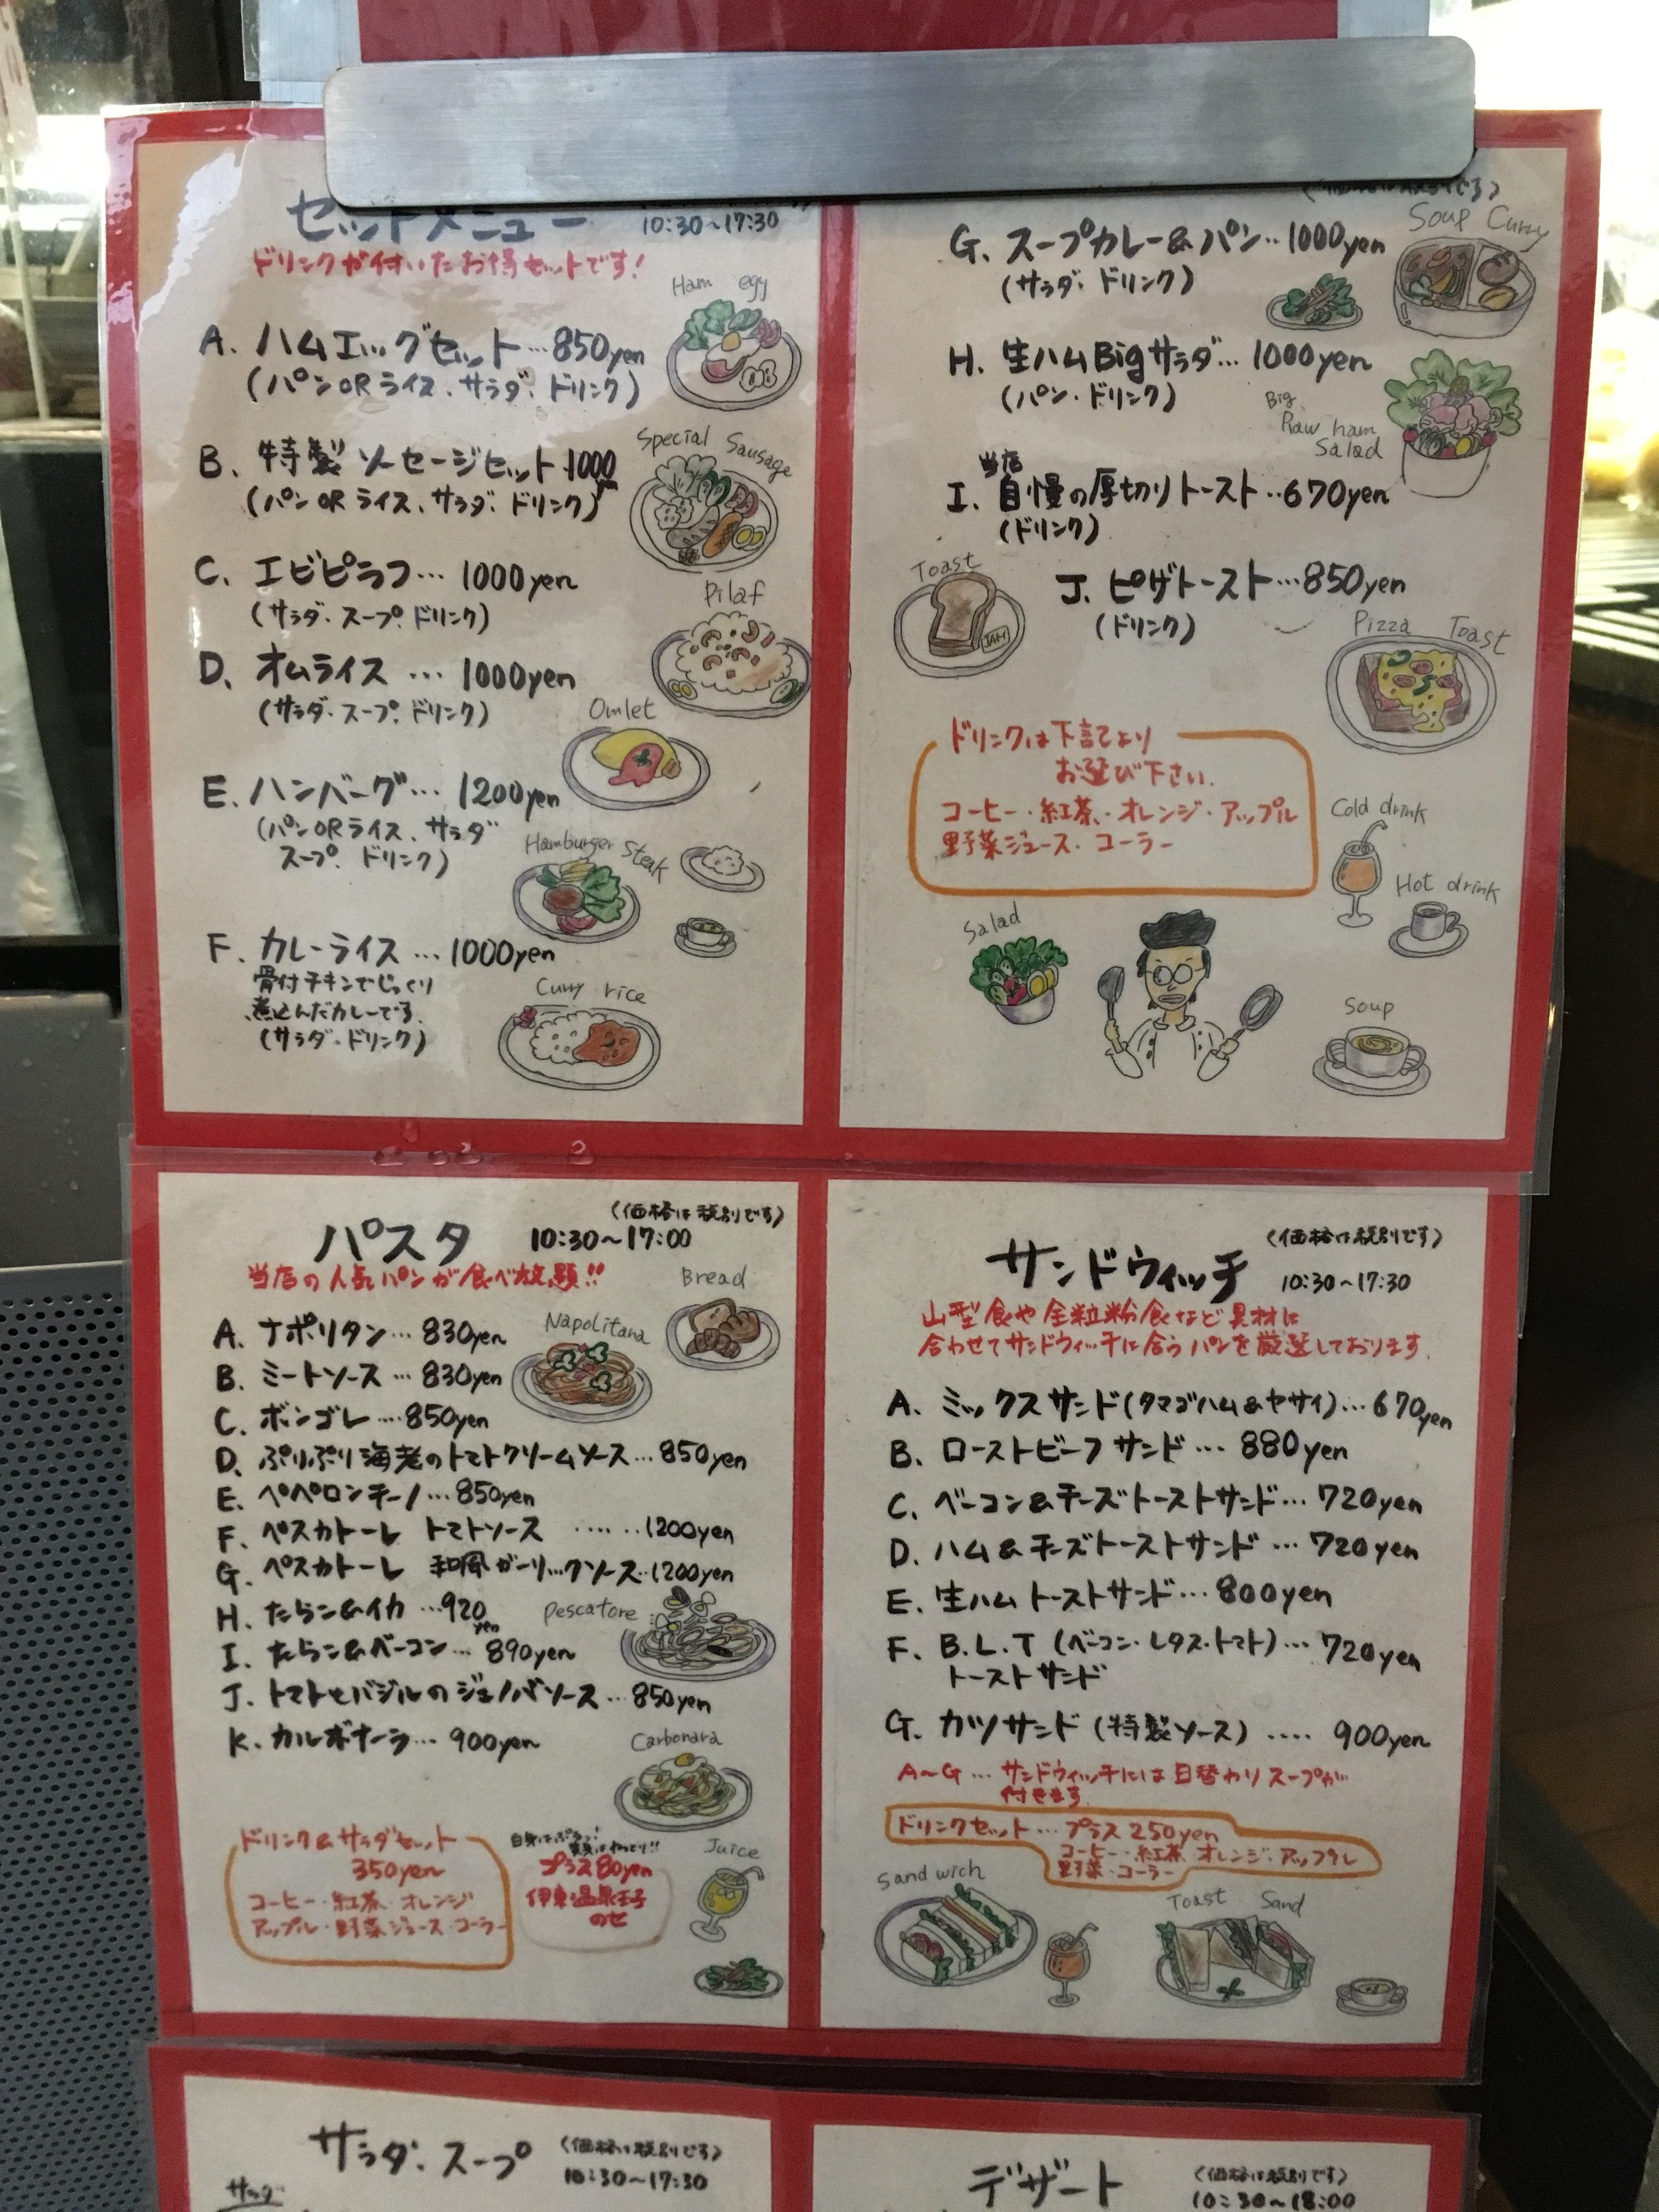 セットメニュー
10:30～17:30
ドリンクが付いたお得セットです!
A. ハムエッグセット…850yen
(パンORライス、サラダ、ドリンク)
Ham egg
B. 特製ソーセージセット1000yen
(パンORライス、サラダ、ドリンク)
Special Sausage
C. エビピラフ…1000yen
(サラダ・スープ・ドリンク)
Pilaf
D. オムライス…1000yen
(サラダ・スープ・ドリンク)
Omlet
E. ハンバーグ…1200yen
(パンORライス、サラダ
スープ、ドリンク)
Hamburger Steak
F. カレーライス…1000yen
骨付チキンでじっくり
煮込んだカレーです。
(サラダ・ドリンク)
Curry rice
G. スープカレー&パン…1000yen
(サラダ・ドリンク)
Soup Curry
H. 生ハムBigサラダ…1000yen
(パン・ドリンク)
Big
Raw ham
Salad
I. 当店自慢の厚切りトースト…670yen
(ドリンク)
Toast
JAM
J. ピザトースト…850yen
(ドリンク)
Pizza Toast
ドリンクは下記より
お選び下さい.
コーヒー・紅茶・オレンジ・アップル
野菜ジュース・コーラー
Cold drink
Hot drink
Salad
Soup
パスタ
(価格は税別です)
10:30～17:00
当店の人気パンが食べ放題!!
Bread
A. ナポリタン…830yen
Napolitana
B. ミートソース…830yen
C. ボンゴレ…850yen
D. ぷりぷり海老のトマトクリームソース…850yen
E. ペペロンチーノ…850yen
F. ペスカトーレ トマトソース ……1200yen
G. ペスカトーレ 和風ガーリックソース…1200yen
H. たらこ&イカ…920yen
I. たらこ&ベーコン…890yen
Pescatore
J. トマトとバジルのジェノバソース…850yen
K. カルボナーラ…900yen
Carbonara
ドリンク&サラダセット
350yen
コーヒー・紅茶・オレンジ
アップル・野菜ジュース・コーラー
プラス80yen
伊東温泉玉子
のせ
Juice
サンドウィッチ
(価格は税別です)
10:30～17:30
山型食や全粒粉食など具材に
合わせてサンドウィッチに合うパンを厳選しております.
A. ミックスサンド(タマゴハム&ヤサイ)…670yen
B. ローストビーフサンド…880yen
C. ベーコン&チーズトーストサンド…720yen
D. ハム&チーズトーストサンド…720yen
E. 生ハムトーストサンド…800yen
F. B.L.T(ベーコン・レタス・トマト)…720yen
トーストサンド
G. カツサンド(特製ソース)….900yen
A～G…サンドウィッチには日替わりスープが
付きます
ドリンクセット…プラス250yen
コーヒー・紅茶・オレンジ・アップル
野菜・コーラー
Sandwich
Toast Sand
サラダ・スープ
(価格は税別です)
10:30～17:30
デザート
(価格は税別です)
10:30～18:00